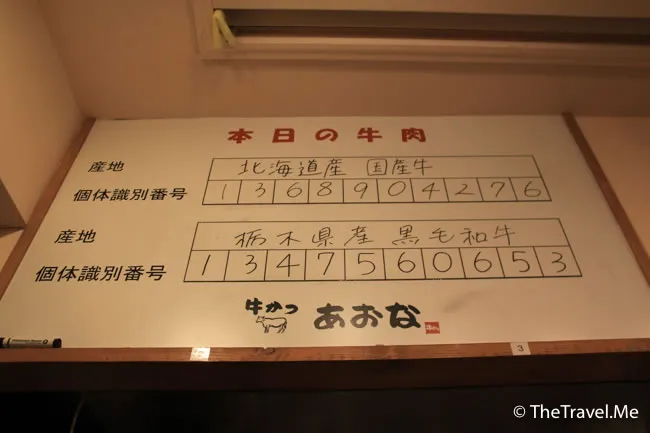 本日の牛肉
産地 北海道産 国産牛
個体識別番号 1368904276
産地 栃木県産 黒毛和牛
個体識別番号 1347560653
牛かつ あおな
3
© TheTravel.Me